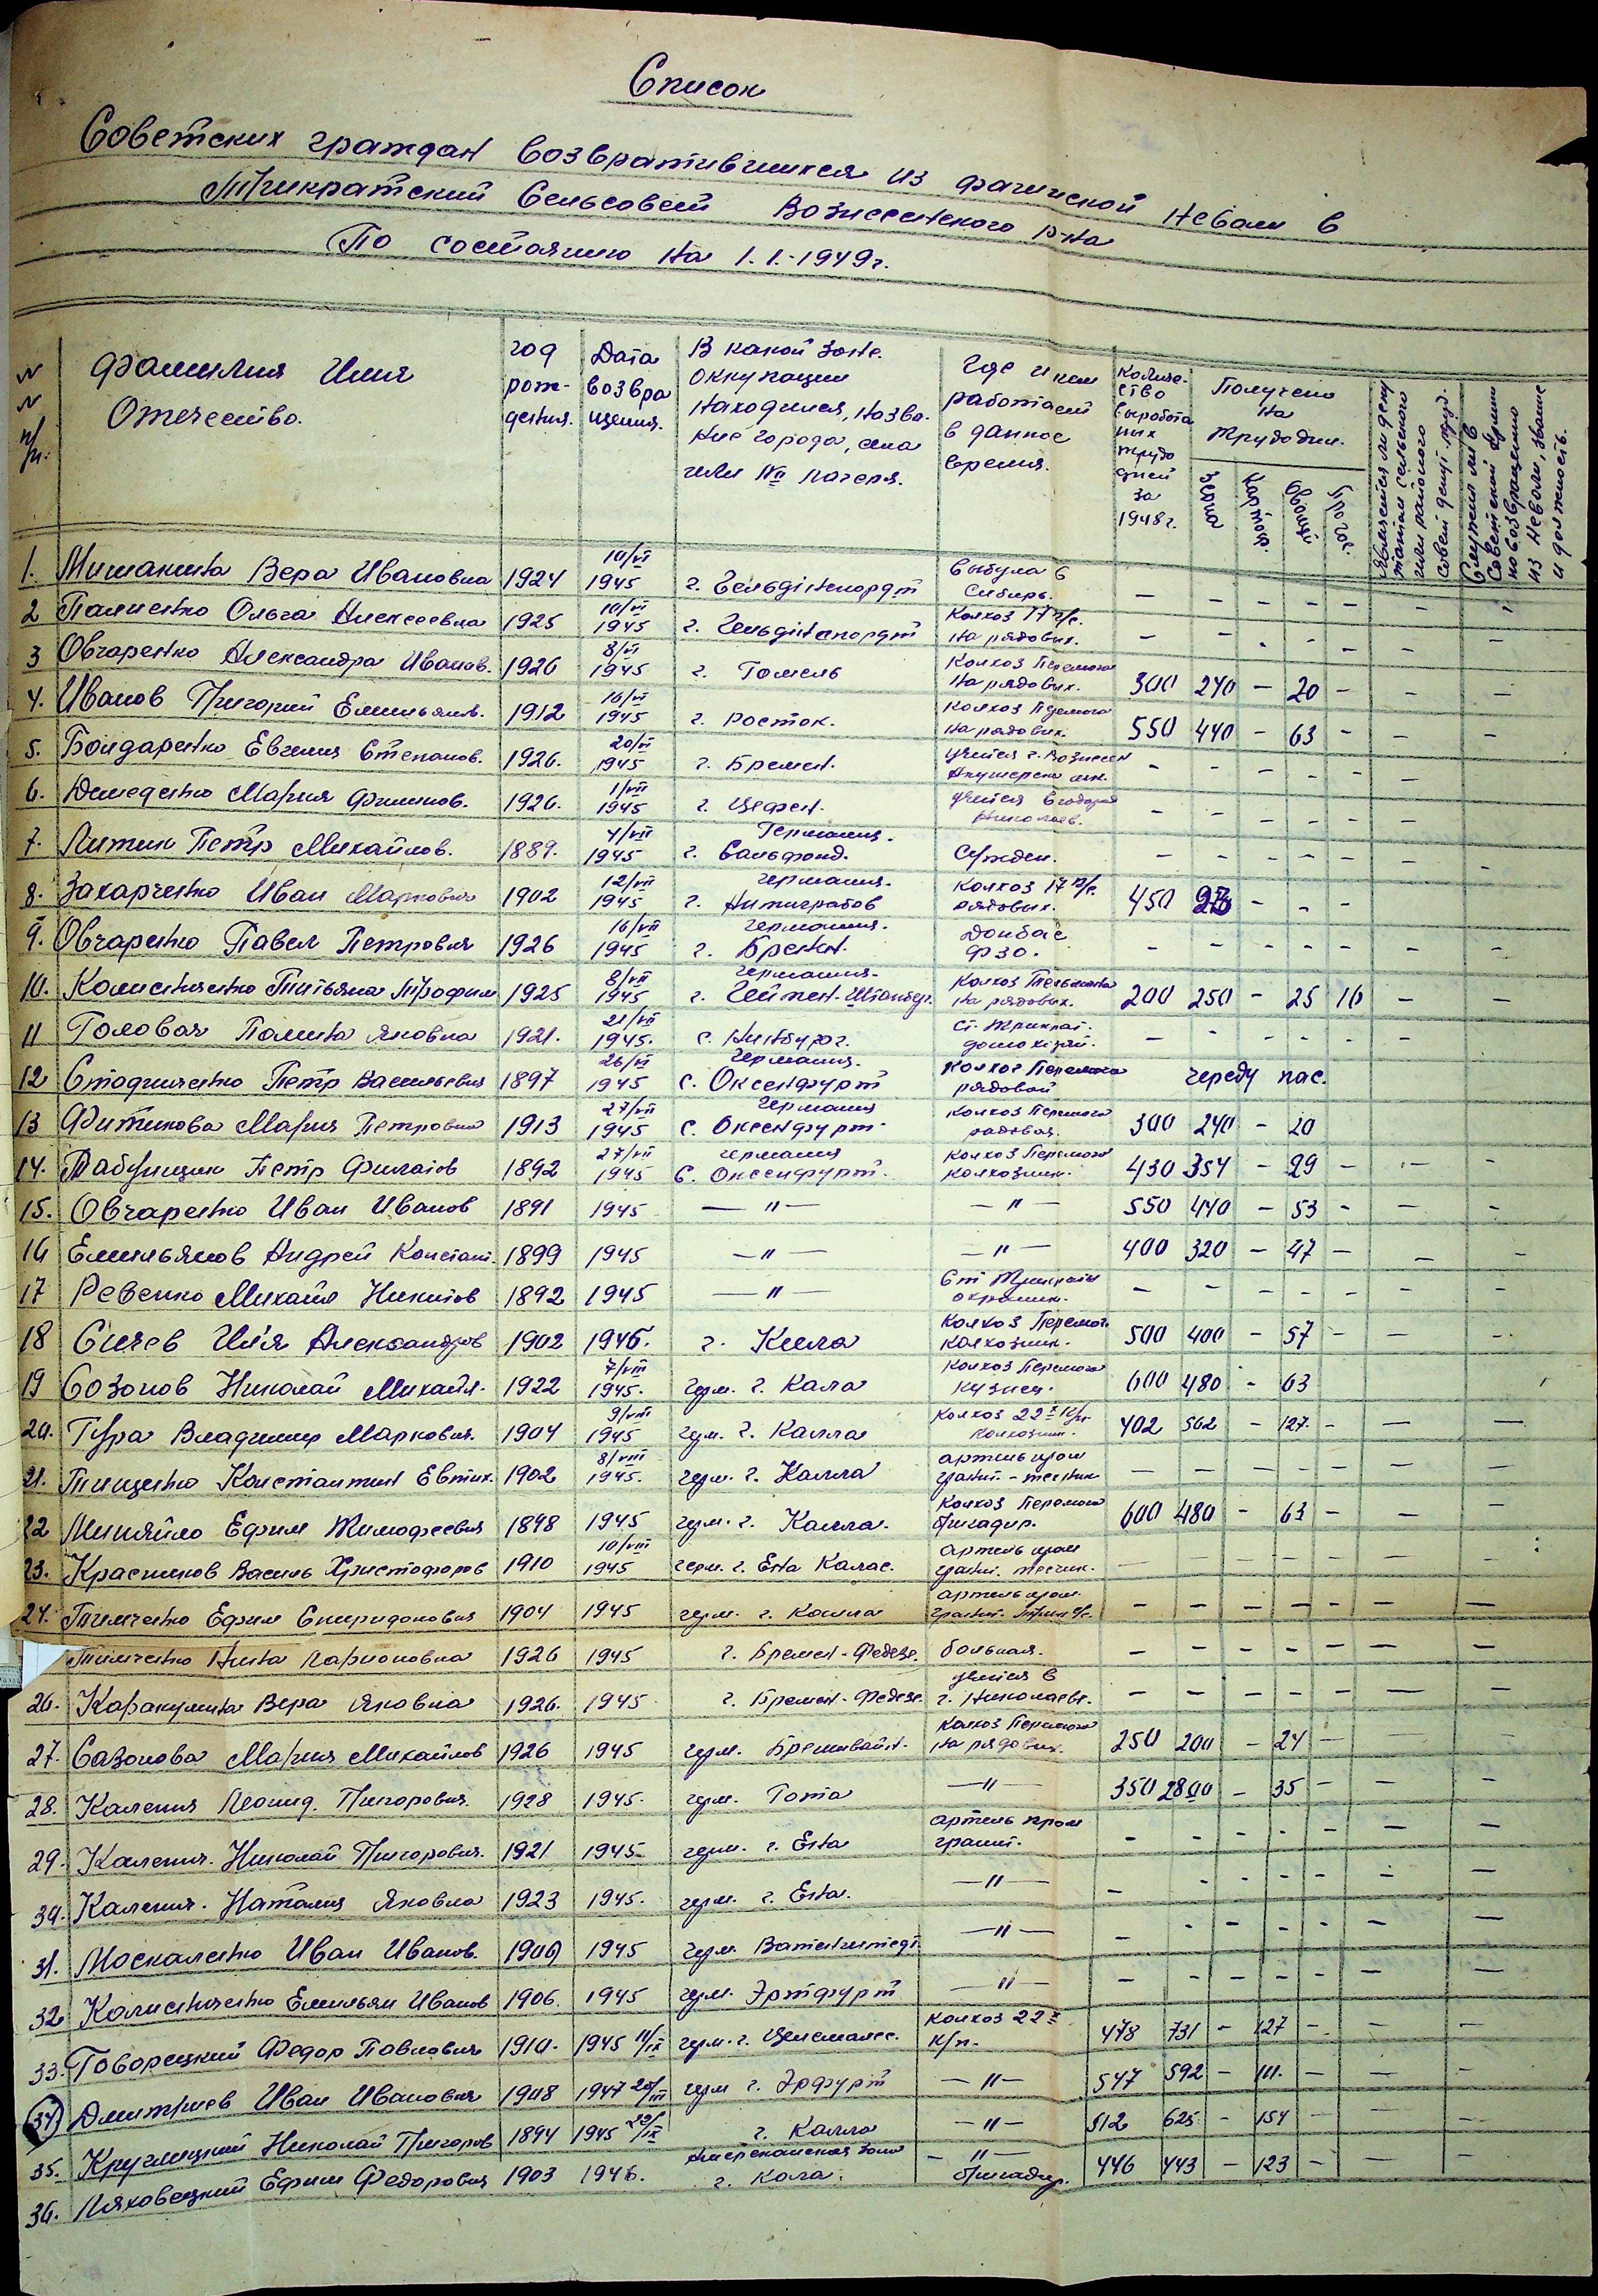 Список
Советских граждан возвратившихся из фашиской неволи в
Трикратский Сельсовет Вознесенского р-на
По состоянию на 1.1.-1949г.
№ № п/п. Фамилия Имя Отечество. год рождения. Дата возвращения. В какой зоне окупации находился, название города, села или № лагеря. Где и кем работает в данное время. Количество выработаных трудодней за 1948г. Получено на трудодни. Зерна Картофл. Овощей Проч. Является ли депутатом сельского или районного совет депут. труд. Служил ли в Советской Армии по возвращению из неволи, звание и должность.
1. Вера Ивановна 1924 10/VI 1945 г. выбула в Сибирь. — — — — — — —
2 Ольга Алексеевна 1925 10/VI 1945 г. Колхоз 17 п/с. на рядовых. — — — — — — —
3 Овчаренко Александра Иванов. 1926 8/VI 1945 г. Гомель Колхоз Перемога на рядовых. 300 240 — 20 — — —
4. Иванов Григорий Емельянов. 1912 10/VI 1945 г. Росток. Колхоз Перемога на рядовых. 550 440 — 63 — — —
5. Бондаренко Евгения Степанов. 1926. 20/VI 1945 г. Бремен. учится г. Вознесен — — — — — —
6. Мария 1926. 1/VII 1945 г. учится в городе Николаев. — — — — — — —
7. Литик Петр Михайлов. 1889. 4/VII 1945 Германия. г. Сужден. — — — — — — —
8. Захарченко Иван Маркович 1902 12/VII 1945 германия. г. колхоз 17 п/с. рядовых. 450 — — —
9. Овчаренко Павел Петрович 1926 16/VII 1945 германия. г. Бремен. Донбас ФЗО. — — — — — — —
10. Татьяна Трофим 1925 8/VII 1945 германия. г. Колхоз на рядовых. 200 250 — 25 16 — —
11 Головач Яковна 1921. 21/VII 1945. с. ст. Трикрат. домохозяй. — — — — —
12 Петр Васильевич 1897 26/VI 1945 германия. с. Оксенфурт колхоз Перемога рядовой череду пас.
13 Фитикова Мария Петровна 1913 27/VII 1945 германия с. Оксенфурт колхоз Перемога радовая. 300 240 — 20
14. Табунщик Петр Филатов 1892 27/VII 1945 германия с. Оксенфурт. колхоз Перемога колхозник. 430 354 — 29 — — —
15. Овчаренко Иван Иванов 1891 1945 — " — — " — 550 440 — 53 — — —
16 Емельянов Андрей Констант. 1899 1945 — " — — " — 400 320 — 47 — — —
17 Ревенко Михаил Никитов 1892 1945 — " — Ст Трикраты охраник. — — — — — — —
18 Сичев Илья Александров 1902 1945. г. Кила Колхоз Перемог. колхозник. 500 400 — 57 — — —
19 Созонов Николай Михайл. 1922 7/VIII 1945. герм. г. Кала Колхоз Перемога кузнец. 600 480 — 63
20. Гура Владимир Маркович. 1904 9/VIII 1945 герм. г. Калла Колхоз 22 х п/с. колхозник. 402 502 — 127. — — —
21. Тищенко Константин Евтих. 1902 8/VIII 1945. герм. г. Калла артель пром гранит. — — — — — — —
22 Миняйло Ефим Тимофеевич 1898 1945 герм. г. Калла. Колхоз Перемога бригадир. 600 480 — 63 — — —
23. Красников Василь Христофоров 1910 10/VIII 1945 герм. г. Ена Калас. артель пром гранит. — — — — — — —
24. Тимченко Ефим Спиридонович 1904 1945 герм. г. Калла артель пром. гранит. — — — — — — —
Тимченко Нина Ларионовна 1926 1945 г. Бремен-Федезе. больная. — — — — — — —
26. Каракулина Вера Яковна 1926. 1945 г. Бремен-Федезе. учится в г. Николаеве. — — — — — — —
27. Сазонова Мария Михайлов 1926 1945 герм. Колхоз Перемога на рядовых. 250 200 — 24 —
28. Каленич Леонид. Григорович. 1928 1945. герм. Гота — " — 350 2800 — 35 — — —
29. Каленич. Николай Григорович. 1921 1945 герм. г. Ена артель пром гранит. — — — — — — —
30. Каленич. Наталия Яковна 1923 1945. герм. г. Ена. — " — — — — — — — —
31. Москаленко Иван Иванов. 1945 герм. — " — — — — — — — —
32. Емельян Иванов 1906. 1945 герм. Эртфурт — " — — — — — — — —
33. Говорецкий Федор Павлович 1910. 1945 11/IX герм. г. колхоз 22 х п/с. 478 731 — 127 — — —
34) Дмитриев Иван Иванович 1908 1947 20/III герм г. Эрфурт — " — 547 592 — 111. — — —
35. Круглицкий Николай Григоров 1894 1945 /IX г. Калла — " — 512 625 — 154 — — —
36. Ляховецкий Ефим Федорович 1903 1946. Американская зона г. Кала. — " — бригадир. 446 443 — 123 — — —